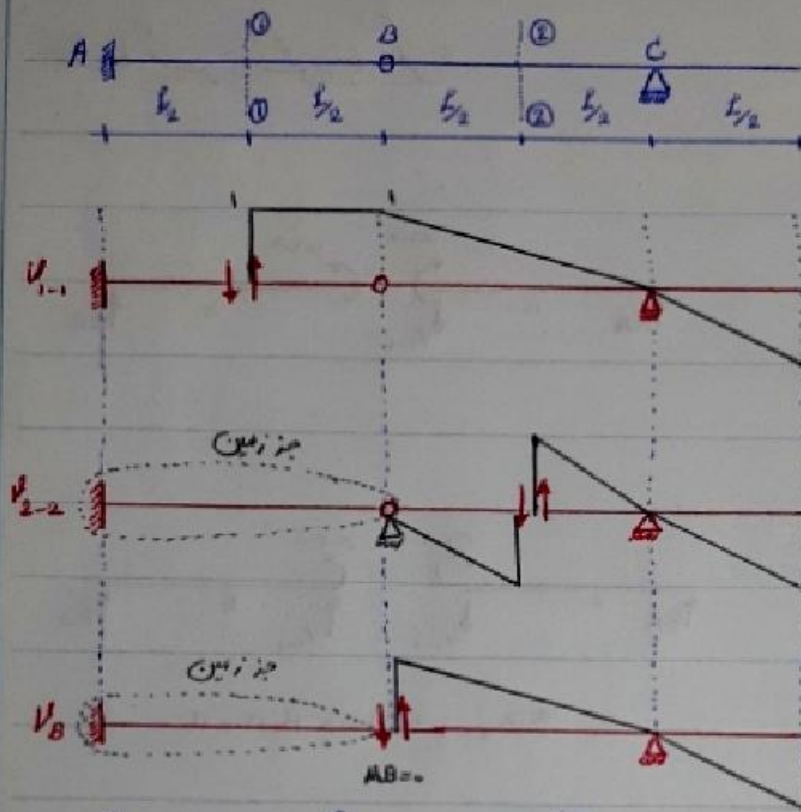 ① B ②
A C
L/2 ① L/2 L/2 ② L/2 L/2
1 1
V1-1
جز زمین
V2-2
جز زمین
VB
MB=0